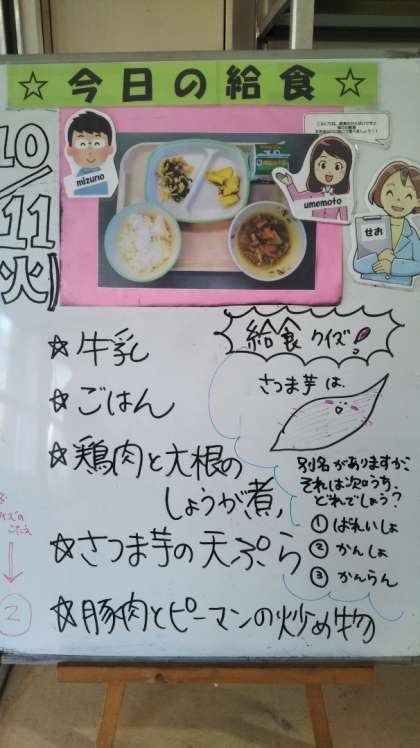 ☆今日の給食☆
10/11(火)
mizuno
umemoto
せお
☆牛乳
☆ごはん
☆鶏肉と大根の
しょうが煮
☆さつま芋の天ぷら
☆豚肉とピーマンの炒め物
給食クイズ!
さつま芋は、
別名がありますが、
それは次のうち、
どれでしょう?
①ばれいしょ
②かんしょ
③かんらん
クイズの
こたえ
↓
②